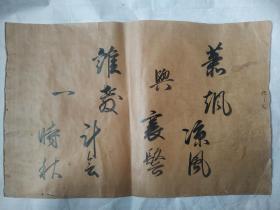 蕭颯凉風
與衰鬢
誰教計會
一時秋